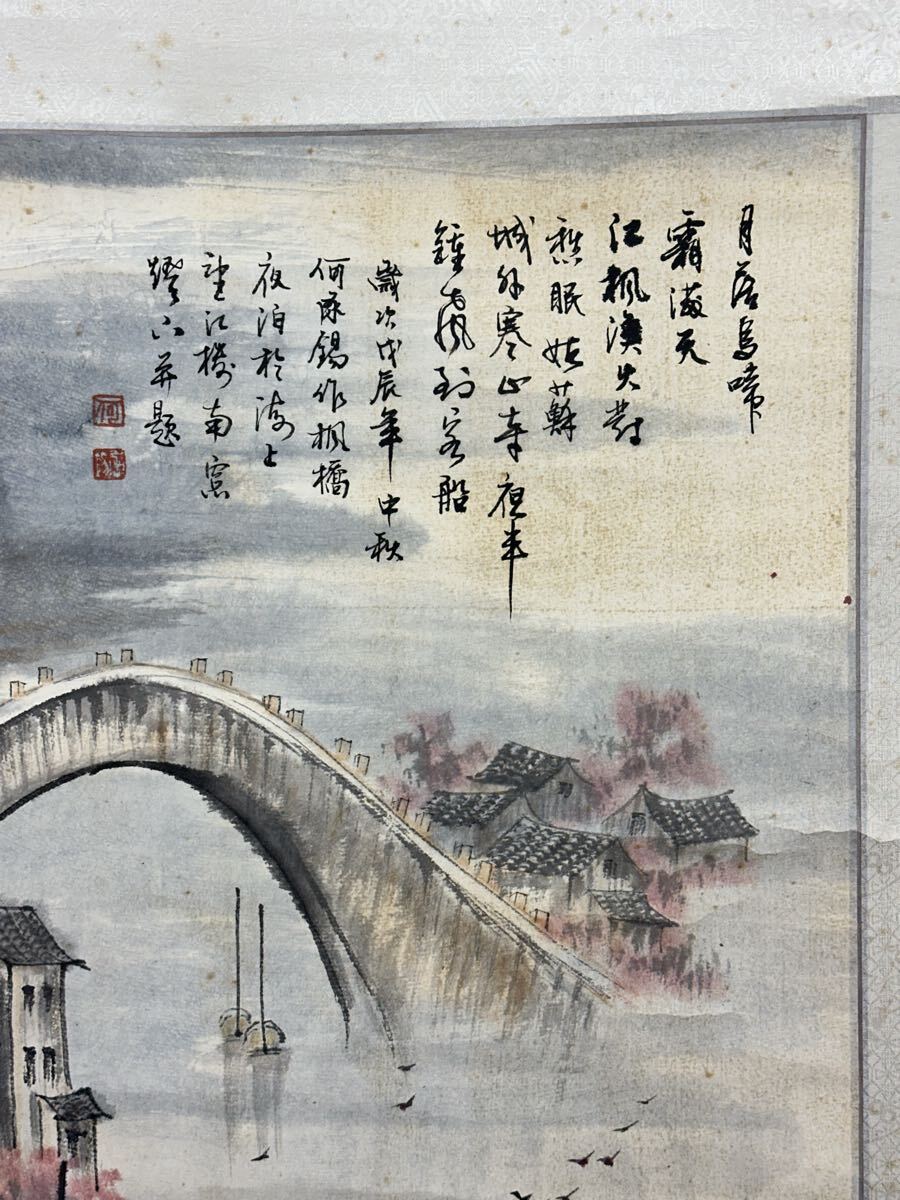 月落烏啼
霜滿天
江楓漁火對
愁眠姑蘇
城外寒山寺夜半
鐘聲到客船
歲次戊辰年中秋
何錫作枫橋
夜泊於海上
望江樓南窗
燈下并題
何